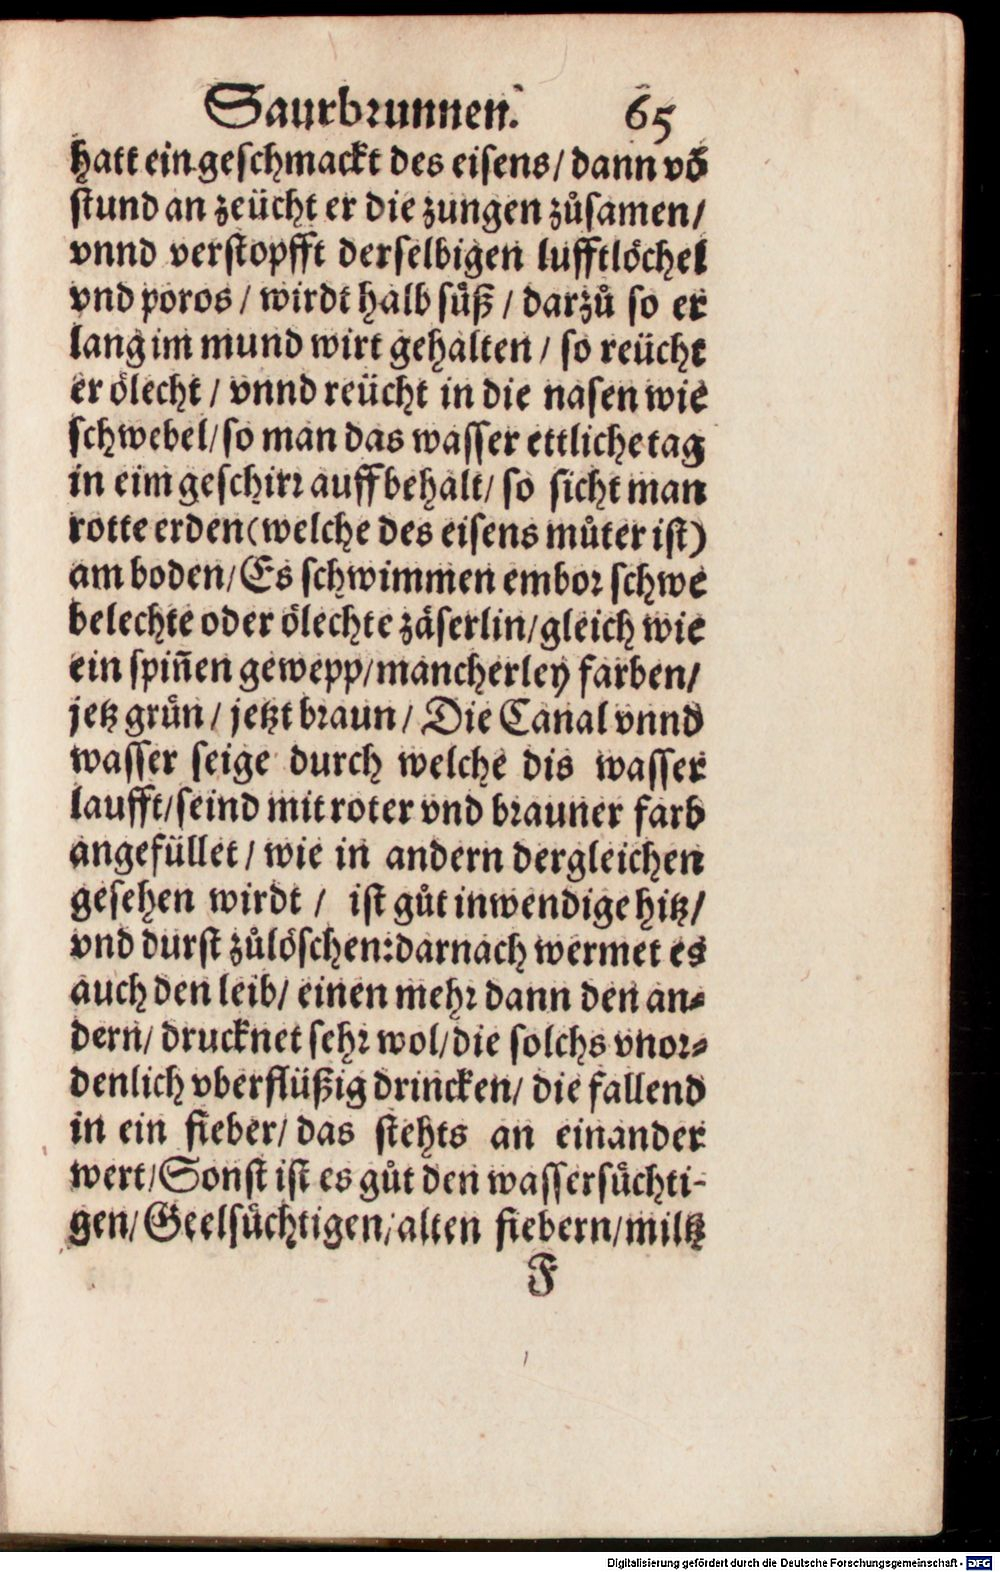 Saurbrunnen. 65
hatt ein geschmackt des eisens/ dann võ
stund an zeücht er die zungen zůsamen/
vnnd verstopfft derselbigen lufftlöchel
vnd poros / wirdt halb süß / darzů so er
lang im mund wirt gehalten / so reücht
er ölecht / vnnd reücht in die nasen wie
schwebel/ so man das wasser ettliche tag
in eim geschirr auffbehalt/ so sicht man
rotte erden (welche des eisens můter ist)
am boden/ Es schwimmen embor schwe
belechte oder ölechte zäserlin/ gleich wie
ein spiñen gewepp/ mancherley farben/
jetz grün / jetzt braun / Die Canal vnnd
wasser seige durch welche dis wasser
laufft/ seind mit roter vnd brauner farb
angefüllet / wie in andern dergleichen
gesehen wirdt / ist gůt inwendige hitz/
vnd durst zůlöschen: darnach wermet es
auch den leib/ einen mehr dann den an⸗
dern/ drucknet sehr wol/ die solchs vnor⸗
denlich vberflüßig drincken/ die fallend
in ein fieber/ das stehts an einander
wert/ Sonst ist es gůt den wassersüchti-
gen/ Geelsüchtigen/ alten fiebern/ miltz
F
Digitalisierung gefördert durch die Deutsche Forschungsgemeinschaft - DFG